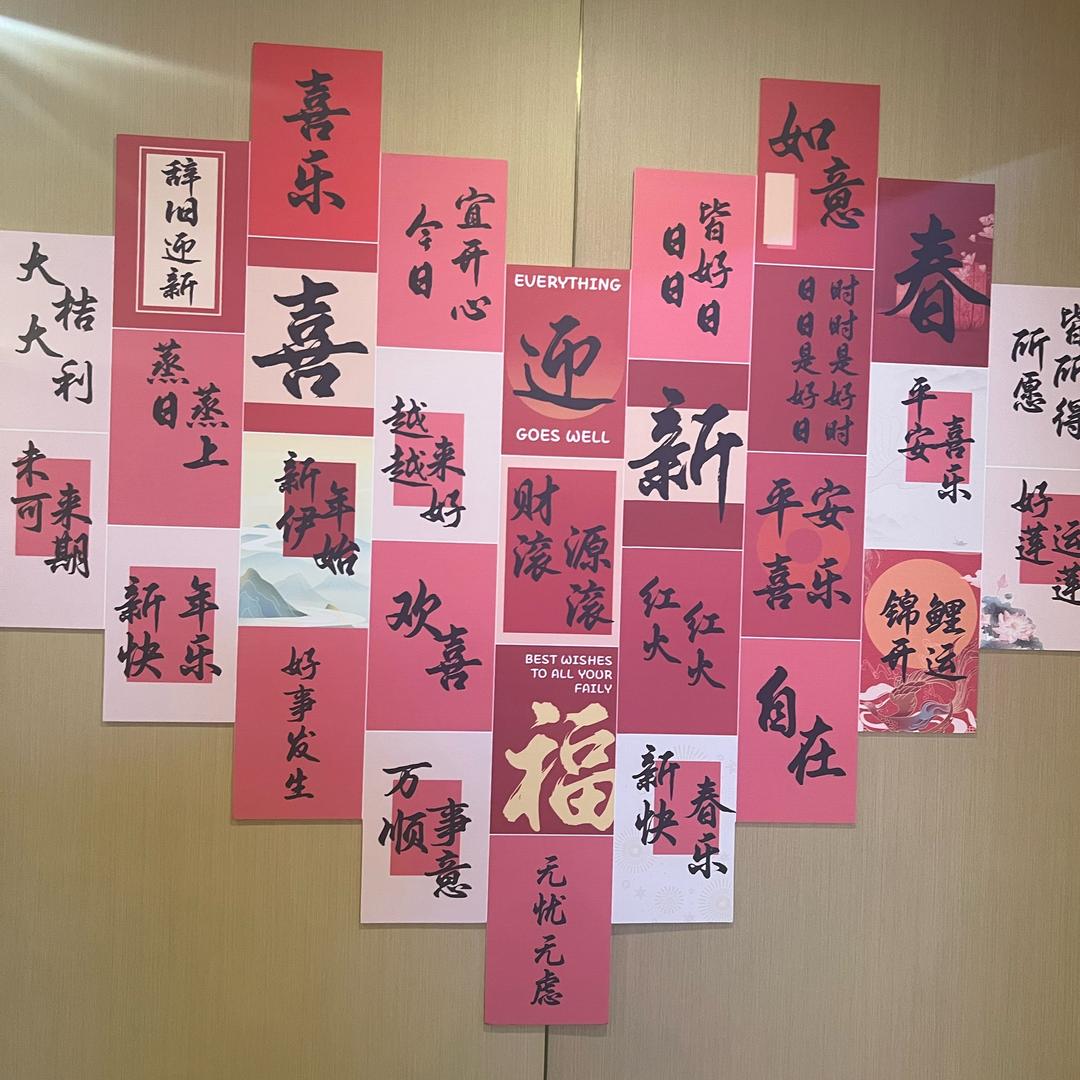 大桔
大利
未来
可期
辞旧迎新
蒸蒸
日上
新年
快乐
喜乐
喜
新年
伊始
好事发生
今日
宜开心
越来
越好
欢喜
万事
顺意
EVERYTHING
迎
GOES WELL
财源
滚滚
BEST WISHES
TO ALL YOUR
FAILY
福
无忧无虑
日日
皆好日
新
红火
红火
新春
快乐
如意
日日是好日
时时是好时
平安
喜乐
自在
春
平安
喜乐
锦鲤
开运
所愿
皆所得
好运
莲莲